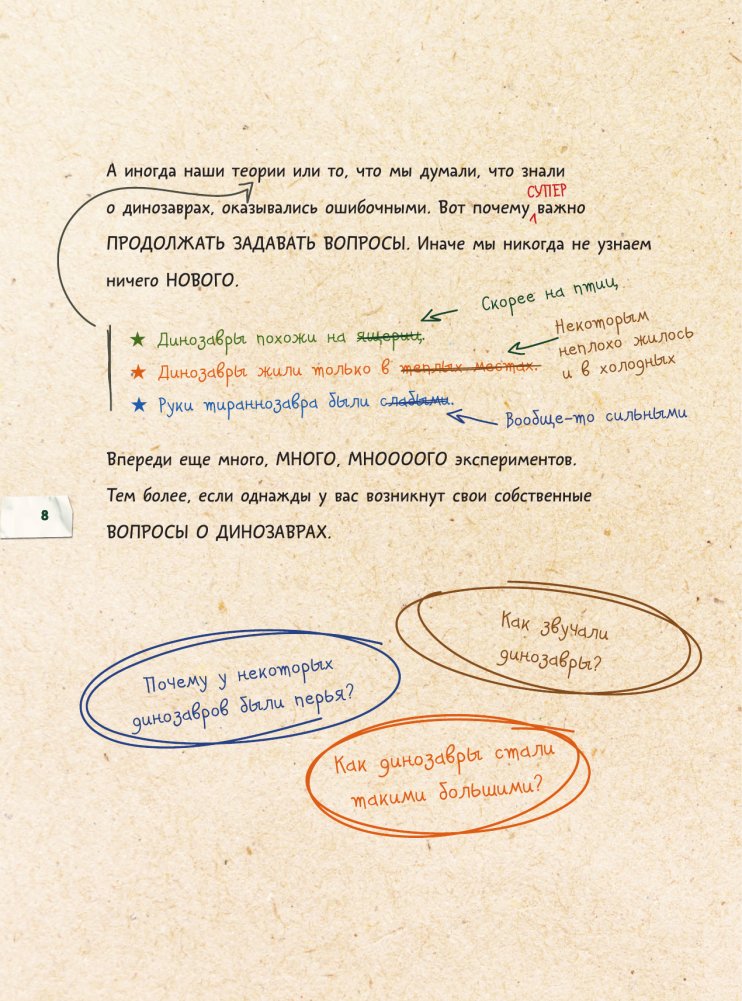 А иногда наши теории или то, что мы думали, что знали
СУПЕР
о динозаврах, оказывались ошибочными. Вот почему важно
ПРОДОЛЖАТЬ ЗАДАВАТЬ ВОПРОСЫ. Иначе мы никогда не узнаем
ничего НОВОГО.
Скорее на птиц
Динозавры похожи на ящериц.
Некоторым
неплохо жилось
и в холодных
Динозавры жили только в теплых местах.
Руки тираннозавра были слабыми.
Вообще-то сильными
Впереди еще много, МНОГО, МНООООГО экспериментов.
Тем более, если однажды у вас возникнут свои собственные
8
ВОПРОСЫ О ДИНОЗАВРАХ.
Как звучали
динозавры?
Почему у некоторых
динозавров были перья?
Как динозавры стали
такими большими?